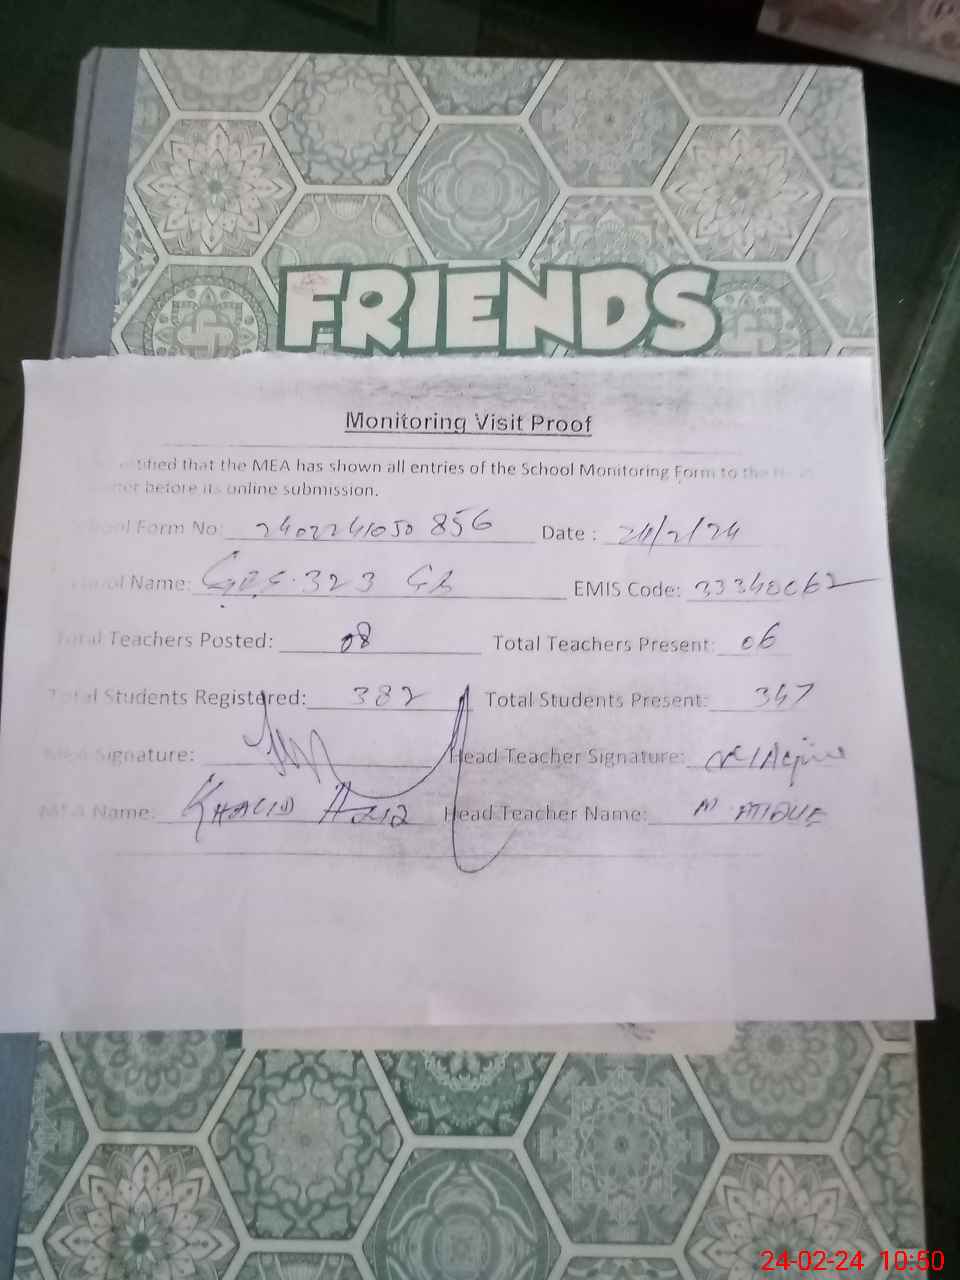 FRIENDS
Monitoring Visit Proof
that the MEA has shown all entries of the School Monitoring Form to the
before its online submission.
School Form No: 2402241050856 Date : 24/2/24
School Name: 323 GB EMIS Code: 33340062
Total Teachers Posted: 08 Total Teachers Present: 06
Total Students Registered: 382 Total Students Present: 347
MEA Signature: Head Teacher Signature:
MEA Name: KHALID AZIZ Head Teacher Name: M ATIQUE
24-02-24 10:50